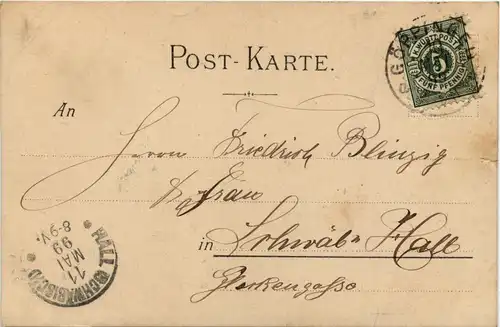 GÖPPINGEN
K.WÜRTT.POST
5
FÜNF PFENNIG
POST-KARTE.
An
Herrn Friedrich Blinzig
& Frau
in Schwäb. Hall
Glockengasse
HALL (SCHWÄBISCH)
11
MAI
99
8-9V.